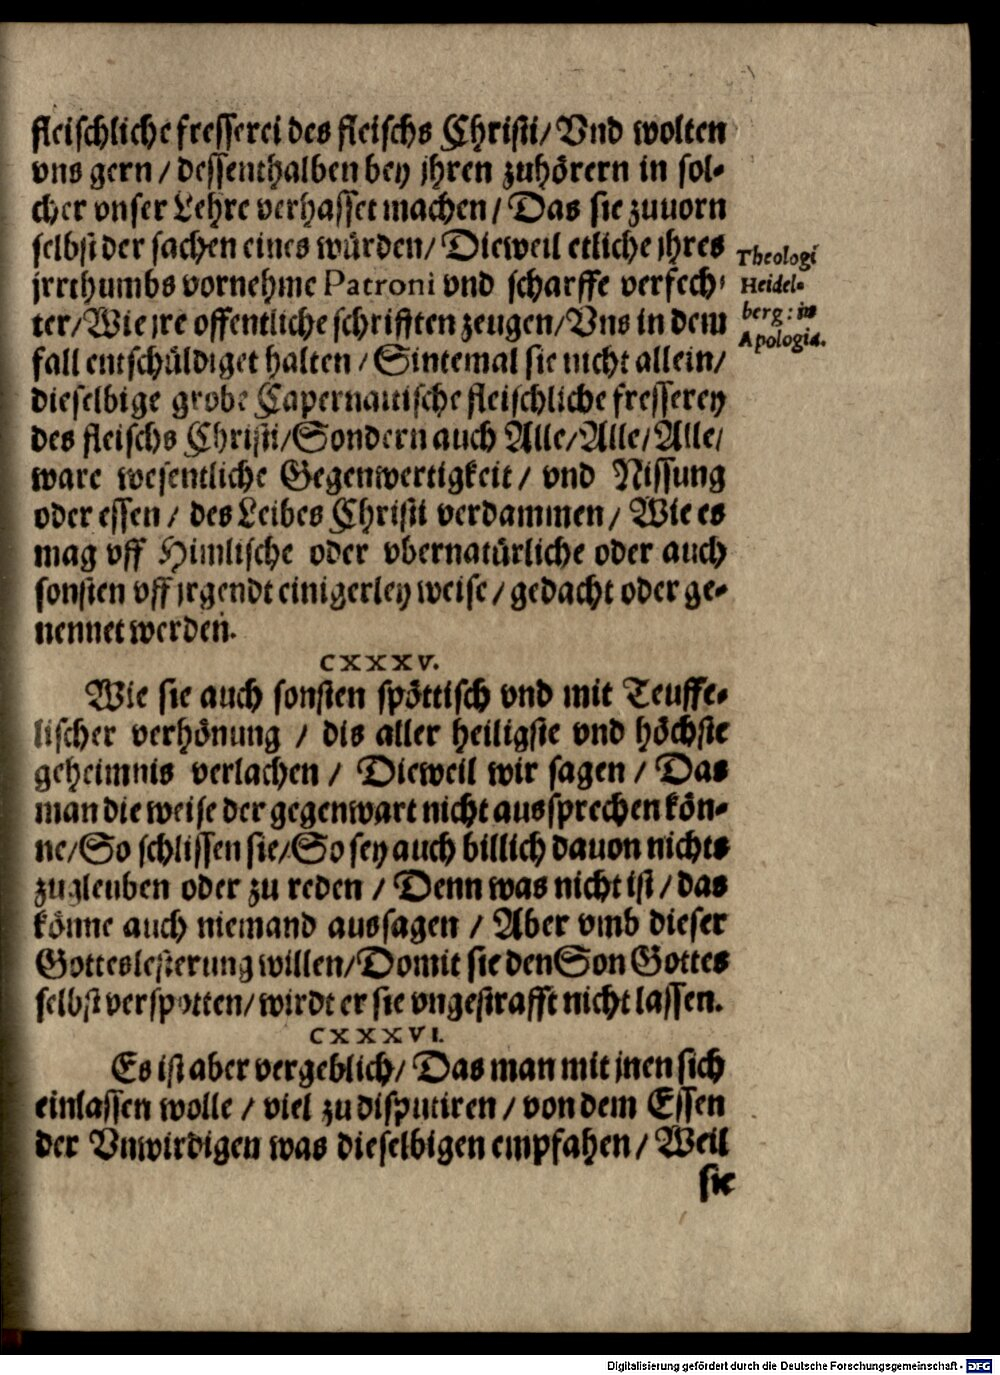 fleischliche fresserei des fleischs Christi/ Vnd wolten
vns gern / dessenthalben bey jhren zuhörern in sol-
cher vnser Lehre verhasset machen / Das sie zuuorn
selbst der sachen eines würden/ Dieweil etliche jhres
jrrthumbs vornehme Patroni vnd scharffe verfech-
ter/ Wie jre offentliche schrifften zeugen/ Vns in dem
fall entschüldiget halten / Sintemal sie nicht allein/
dieselbige grobe Capernautische fleischliche fresserey
des fleischs Christi/ Sondern auch Alle/ Alle/ Alle/
ware wesentliche Gegenwertigkeit / vnd Nissung
oder essen / des Leibes Christi verdammen/ Wie es
mag vff Himlische oder vbernatürliche oder auch
sonsten vff jrgendt einigerley weise / gedacht oder ge-
nennet werden.
Theologi
Heidel-
berg: in
Apologia.
CXXXV.
Wie sie auch sonsten spöttisch vnd mit Teuffe-
lischer verhönung / dis aller heiligste vnd höchste
geheimnis verlachen / Dieweil wir sagen / Das
man die weise der gegenwart nicht aussprechen kön-
ne/ So schlissen sie/ So sey auch billich dauon nichts
zugleuben oder zu reden / Denn was nicht ist / das
könne auch niemand aussagen / Aber vmb dieser
Gotteslesterung willen/ Domit sie den Son Gottes
selbst verspotten/ wirdt er sie vngestrafft nicht lassen.
CXXXVI.
Es ist aber vergeblich/ Das man mit jnen sich
einlassen wolle / viel zu disputiren / von dem Essen
der Vnwirdigen was dieselbigen empfahen / Weil
sie
Digitalisierung gefördert durch die Deutsche Forschungsgemeinschaft - DFG